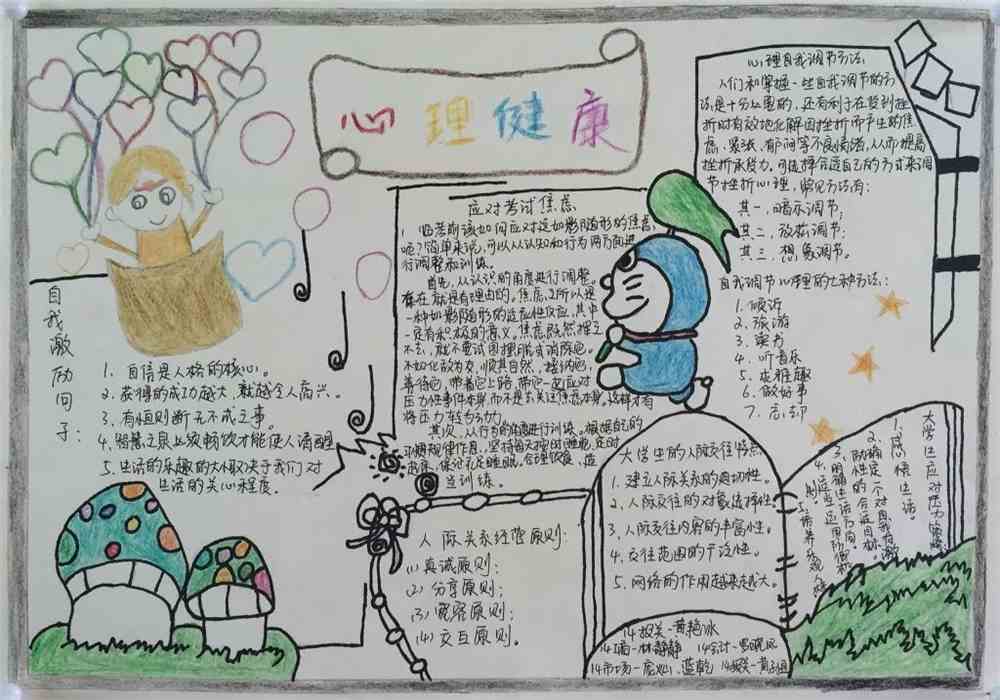 心理健康
心理自我调节方法
人们和掌握一些自我调节的方
法是十分必要的，还有利于在受到挫
折时有效地化解因挫折而产生的焦
虑、紧张、郁闷等不良情绪，从而提高
挫折承受力，可选择合适自己的方式来调
节挫折心理，常见方法有：
其一，暗示调节；
其二，放松调节；
其三，想象调节。
自我调节心理的七种方法：
1. 倾诉
2. 旅游
3. 读书
4. 听音乐
5. 求雅趣
6. 做好事
7. 忘却
应对考试焦虑
临考前该如何应对这如影随形的焦虑
呢？简单来说，可以从认知和行为两方面进
行调整和训练。
首先，从认识的角度进行调整。
存在就是有理由的。焦虑，之所以是
一种如影随形的适应性反应，其中
一定有积极的意义。焦虑既然挥之
不去，就不要试图摆脱或消除它。
不如化敌为友，顺其自然，接纳它，
善待它，带着它上路，带它一起应对
压力性事件本身，而不是去关注焦虑本身。这样才有
将压力转为动力
其次，从行为的角度进行训练。根据自己的
习惯规律作息，坚持每天按时睡觉，定时
起床，保证充足睡眠，合理饮食，适
当训练。
自我激励句子：
1. 自信是人格的核心。
2. 获得的成功越大，就越令人高兴。
3. 有恒则断无不成之事。
4. 智慧之泉上级畅饮才能使人清醒
5. 生活的乐趣的大小取决于我们对
生活的关心程度。
人际关系经营原则：
(1) 真诚原则：
(2) 分享原则；
(3) 宽容原则；
(4) 交互原则。
大学生的人际交往特点
1. 建立人际关系的迫切性。
2. 人际交往的对象选择性。
3. 人际交往内容的丰富性。
4. 交往范围的广泛性。
5. 网络的作用越来越大。
大学生应对压力策略
1、感悟生活。
14报关一黄艳冰
林静静 14会计一
14市场一